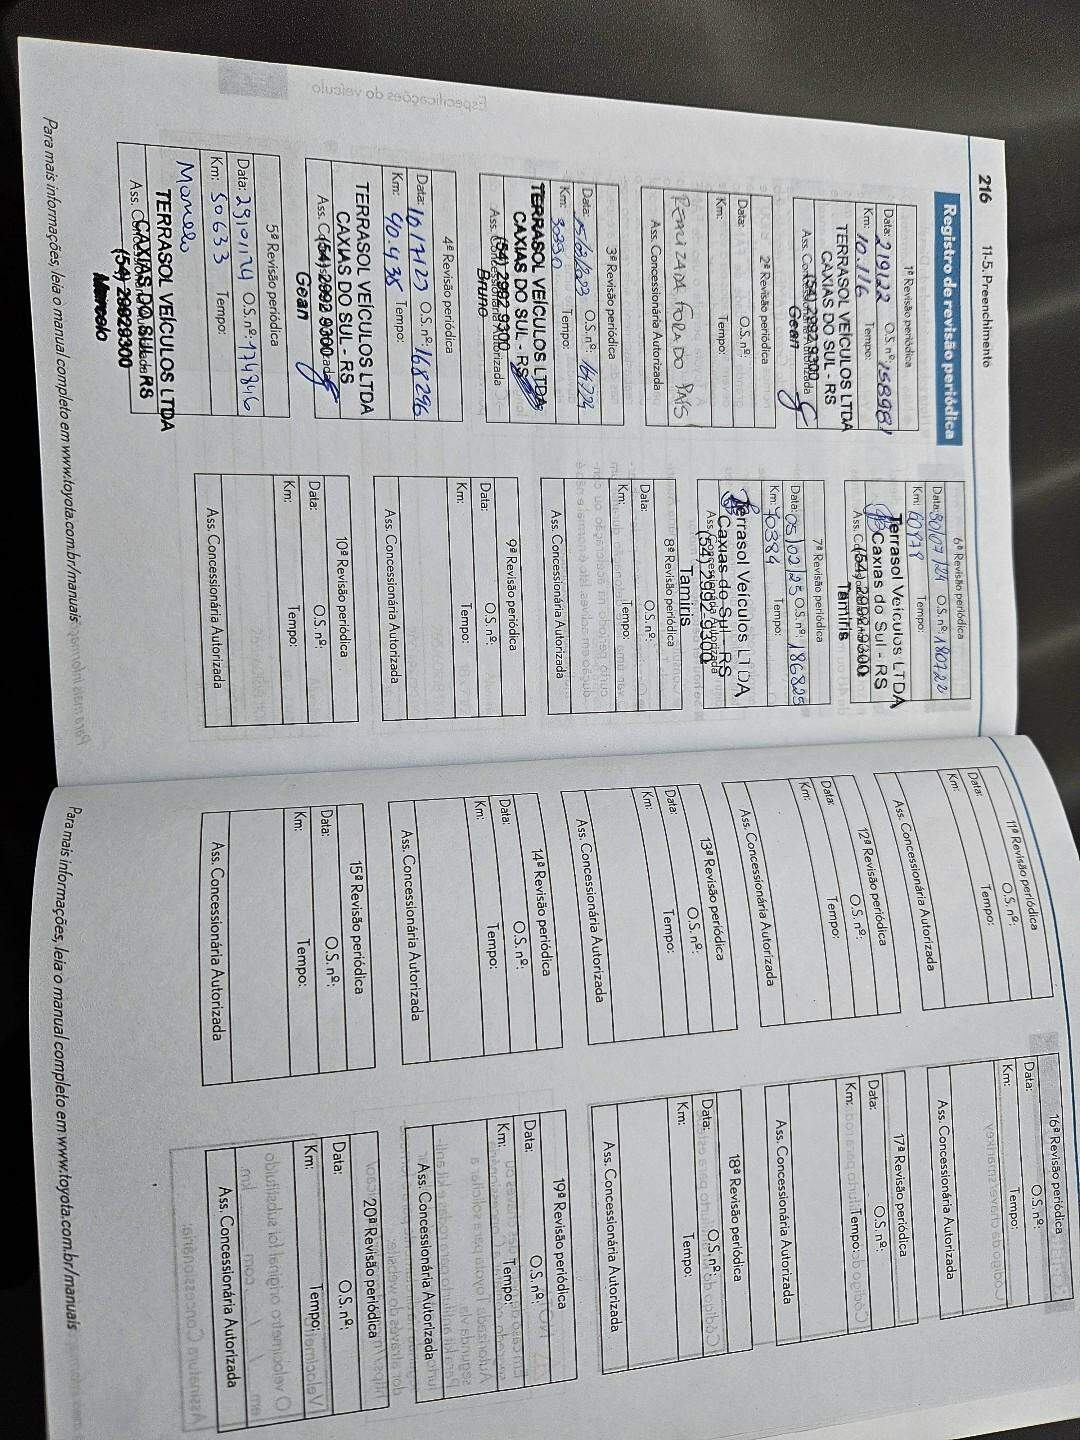 216 11-5. Preenchimento
Registro de revisão periódica
1ª Revisão periódica
Data: 21/9/22 O.S. nº: 158981
Km: 10.116 Tempo:
TERRASOL VEÍCULOS LTDA
CAXIAS DO SUL - RS
(54) 2992 9300
Ass. Concessionária Autorizada
Gean
2ª Revisão periódica
Data: O.S. nº:
Km: Tempo:
REALIZADA FORA DO PAÍS
Ass. Concessionária Autorizada
3ª Revisão periódica
Data: 15/02/2023 O.S. nº:
Km: Tempo:
TERRASOL VEÍCULOS LTDA
CAXIAS DO SUL - RS
(54) 2992 9300
Ass. Concessionária Autorizada
Bruno
4ª Revisão periódica
Data: 10/7/23 O.S. nº: 168296
Km: 40.435 Tempo:
TERRASOL VEÍCULOS LTDA
CAXIAS DO SUL - RS
(54) 2992 9300
Gean
5ª Revisão periódica
Data: 29/01/24 O.S. nº: 174816
Km: 50633 Tempo:
Marcelo
TERRASOL VEÍCULOS LTDA
CAXIAS DO SUL RS
(54) 29929300
Marcelo
6ª Revisão periódica
Data: 30/07/24 O.S. nº: 180722
Km: 60978 Tempo:
Terrasol Veículos LTDA
Caxias do Sul - RS
(54) 2992 9300
Tamiris
7ª Revisão periódica
Data: 05/02/25 O.S. nº: 186825
Km: 70384 Tempo:
Terrasol Veículos LTDA
Caxias do Sul - RS
(54) 2992 9300
Tamiris
8ª Revisão periódica
Data: O.S. nº:
Km: Tempo:
Ass. Concessionária Autorizada
9ª Revisão periódica
Data: O.S. nº:
Km: Tempo:
Ass. Concessionária Autorizada
10ª Revisão periódica
Data: O.S. nº:
Km: Tempo:
Ass. Concessionária Autorizada
Para mais informações, leia o manual completo em www.toyota.com.br/manuais
11ª Revisão periódica
Data: O.S. nº:
Km: Tempo:
Ass. Concessionária Autorizada
12ª Revisão periódica
Data: O.S. nº:
Km: Tempo:
Ass. Concessionária Autorizada
13ª Revisão periódica
Data: O.S. nº:
Km: Tempo:
Ass. Concessionária Autorizada
14ª Revisão periódica
Data: O.S. nº:
Km: Tempo:
Ass. Concessionária Autorizada
15ª Revisão periódica
Data: O.S. nº:
Km: Tempo:
Ass. Concessionária Autorizada
16ª Revisão periódica
Data: O.S. nº:
Km: Tempo:
Ass. Concessionária Autorizada
17ª Revisão periódica
Data: O.S. nº:
Km: Tempo:
Ass. Concessionária Autorizada
18ª Revisão periódica
Data: O.S. nº:
Km: Tempo:
Ass. Concessionária Autorizada
19ª Revisão periódica
Data: O.S. nº:
Km: Tempo:
Ass. Concessionária Autorizada
20ª Revisão periódica
Data: O.S. nº:
Km: Tempo:
Ass. Concessionária Autorizada
Para mais informações, leia o manual completo em www.toyota.com.br/manuais